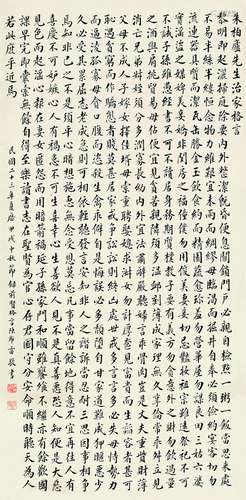 朱柏廬先生治家格言
黎明即起灑掃庭除要內外整潔既昏便息關鎖門戶必親自檢點一粥一飯當思來處
不易半絲半縷恒念物力維艱宜未雨而綢繆毋臨渴而掘井自奉必須儉約宴客切勿
流連器具質而潔瓦缶勝金玉飲食約而精園蔬愈珍羞勿營華屋勿謀良田三姑六婆
實淫盜之媒婢美妾嬌非閨房之福奴僕勿用俊美妻妾切忌艷妝祖宗雖遠祭祀不可
不誠子孫雖愚經書不可不讀居身務期質樸教子要有義方勿貪意外之財勿飲過量
之酒與肩挑貿易毋佔便宜見貧苦親鄰須多溫卹刻薄成家理無久享倫常乖舛立見
消亡兄弟叔姪須分多潤寡長幼內外宜法肅辭嚴聽婦言乖骨肉豈是丈夫重貲財薄
父母不成人子嫁女擇佳婿毋索重聘娶媳求淑女勿計厚奩見富貴而生諂容者最可恥
遇貧窮而作驕態者賤莫甚居家戒爭訟訟則終凶處世戒多言言多必失毋恃勢力
而凌逼孤寡毋貪口腹而恣殺牲禽乖僻自是悔誤必多頹惰自甘家道難成狎暱惡少
久必受其累屈志老成急則可相依輕聽發言安知非人之譖訴當忍耐三思因事相爭
焉知非己之不是須平心暗想施惠無念受恩莫忘凡事當留餘地得意不宜再往人有
喜慶不可生妒嫉心人有禍患不可生喜幸心善欲人見不是真善惡恐人知便是大惡
見色而起淫心報在妻女匿怨而用暗箭禍延子孫家門和順雖饔飧不繼亦有餘歡國
課早完即囊橐無餘自得至樂讀書志在聖賢為官心存君國守分安命順時聽天為人
若此庶乎近焉
民國二十三年夏曆甲戌中秋節